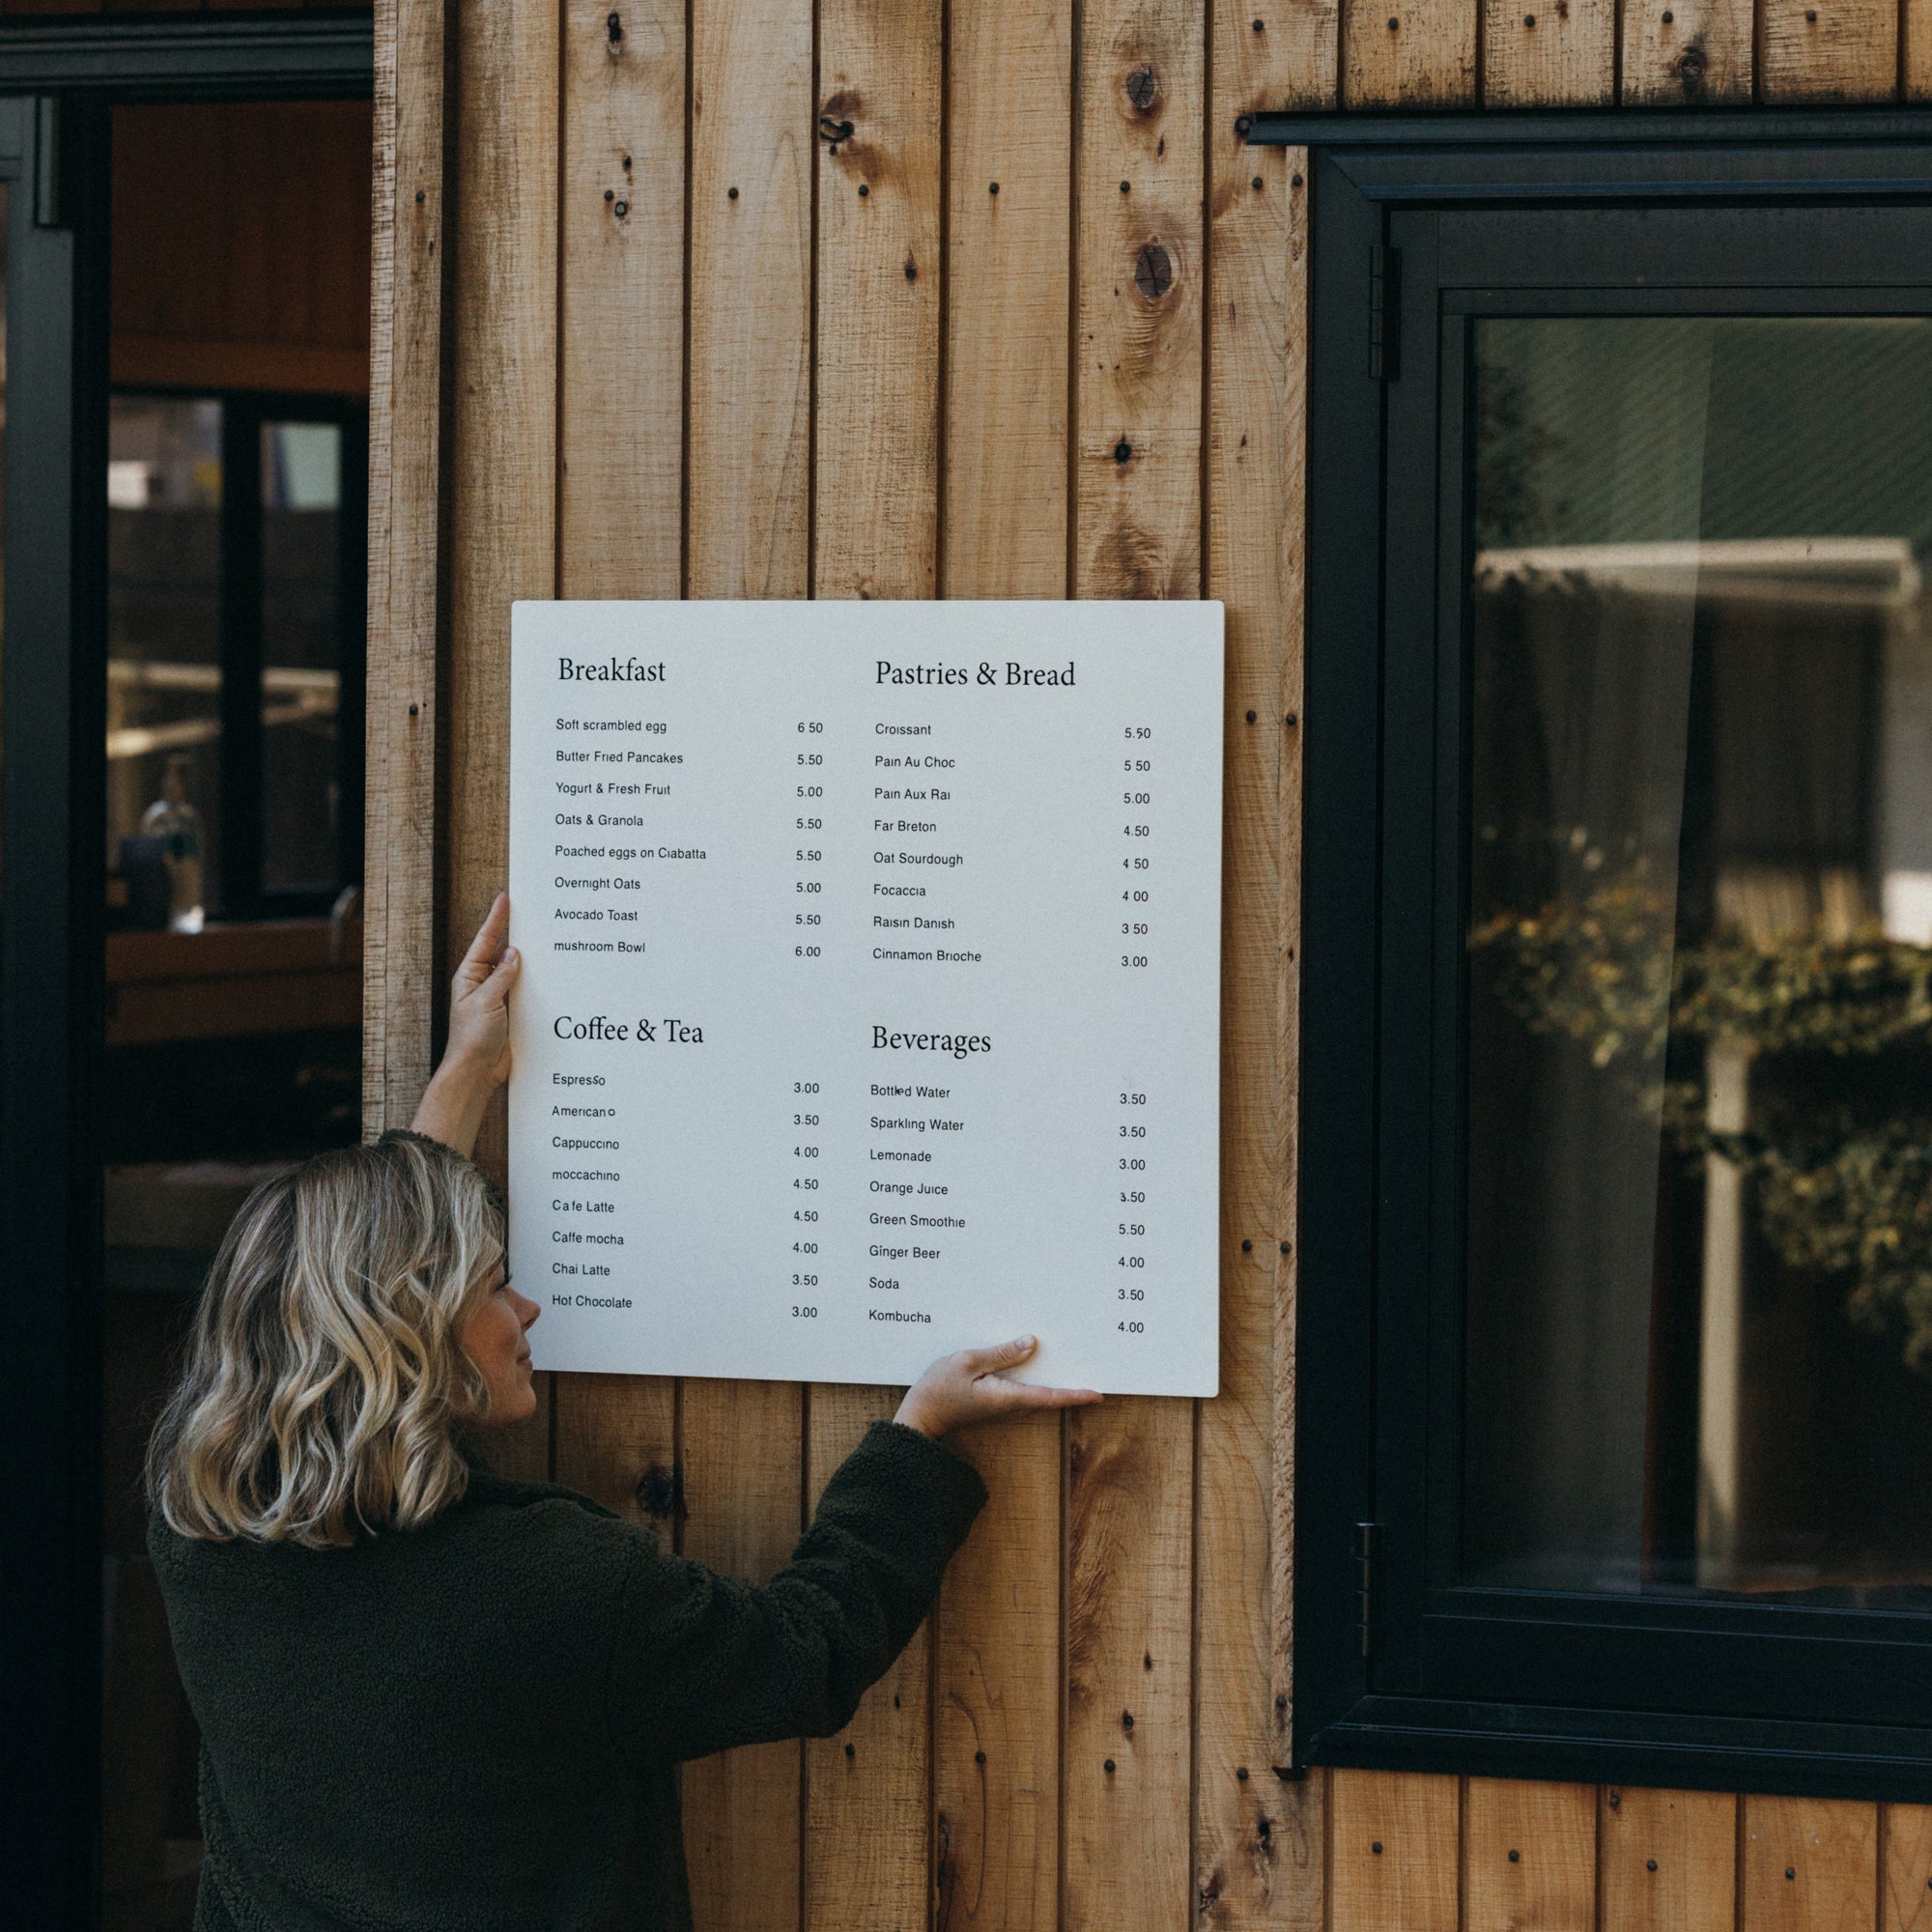 Breakfast
Soft scrambled egg 6 50
Butter Fried Pancakes 5.50
Yogurt & Fresh Fruit 5.00
Oats & Granola 5.50
Poached eggs on Ciabatta 5.50
Overnight Oats 5.00
Avocado Toast 5.50
mushroom Bowl 6.00
Pastries & Bread
Croissant 5.50
Pain Au Choc 5 50
Pain Aux Rai 5.00
Far Breton 4.50
Oat Sourdough 4 50
Focaccia 4 00
Raisin Danish 3 50
Cinnamon Brioche 3.00
Coffee & Tea
Espresso 3.00
Americano 3.50
Cappuccino 4.00
moccachino 4.50
Cafe Latte 4.50
Caffe mocha 4.00
Chai Latte 3.50
Hot Chocolate 3.00
Beverages
Bottled Water 3.50
Sparkling Water 3.50
Lemonade 3.00
Orange Juice 3.50
Green Smoothie 5.50
Ginger Beer 4.00
Soda 3.50
Kombucha 4.00